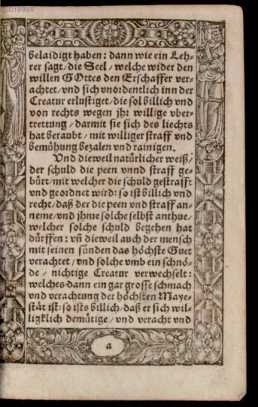 belaidigt haben: dann wie ein Leh-
rer sagt / die Seel / welche wider den
willen GOttes den Erschaffer ver-
achtet / vnd sich vnordentlich inn der
Creatur erlustiget / die sol billich vnd
von rechts wegen jhr willige vber-
trettung / darmit sie sich des liechts
hat beraubt / mit williger straff vnd
bemühung bezalen vnd rainigen.
Vnd dieweil natürlicher weiß /
der schuld die peen vnnd straff ge-
bürt / mit welcher die schuld gestrafft
vnd geordnet wird: so ist billich vnd
recht / daß der die peen vnd straff an-
neme / vnd jhme solche selbst anthue /
welcher solche schuld begehen hat
dürffen: vñ dieweil auch der mensch
mit seinen sünden das höchste Guet
verachtet / vnd solche vmb ein schnö-
de / nichtige Creatur verwechselt:
welches dann ein gar grosse schmach
vnd verachtung der höchsten Maye-
stät ist: so ists billich / daß er sich wil-
ligklich demütige / vnd veracht vnd
a